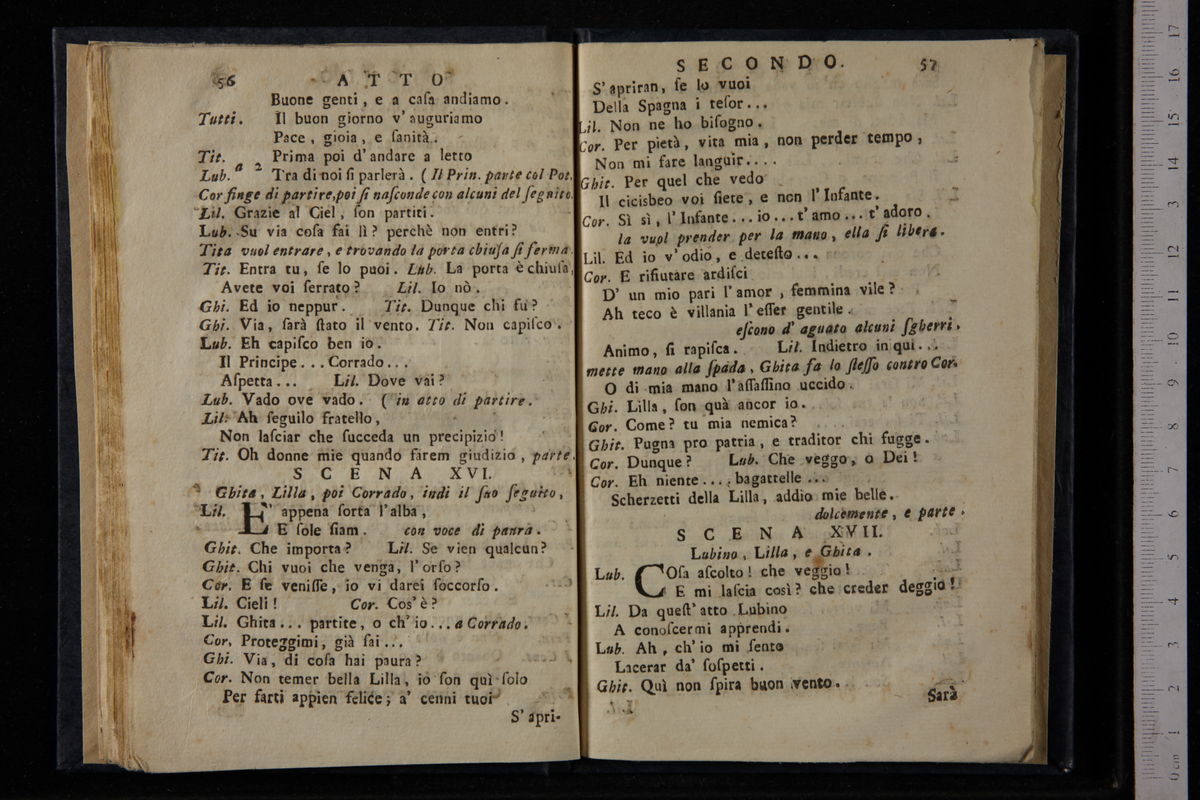 56 ATTO
Buone genti, e a caſa andiamo.
Tutti. Il buon giorno v' auguriamo
Pace, gioia, e ſanità.
Tit. Prima poi d' andare a letto
Lub. a 2 Tra di noi ſi parlerà. ( Il Prin. parte col Pot.
Cor finge di partire, poi ſi naſconde con alcuni del ſeguito.
Lil. Grazie al Ciel, ſon partiti.
Lub. Su via coſa fai lì? perchè non entri?
Tita vuol entrare, e trovando la porta chiuſa ſi ferma.
Tit. Entra tu, ſe lo puoi. Lub. La porta è chiuſa,
Avete voi ſerrato? Lil. Io nò.
Ghi. Ed io neppur. Tit. Dunque chi fu?
Ghi. Via, ſarà ſtato il vento. Tit. Non capiſco.
Lub. Eh capiſco ben io.
Il Principe... Corrado...
Aſpetta... Lil. Dove vai?
Lub. Vado ove vado. ( in atto di partire.
Lil. Ah ſeguilo fratello,
Non laſciar che ſucceda un precipizio!
Tit. Oh donne mie quando farem giudizio, parte.
SCENA XVI.
Ghita, Lilla, poi Corrado, indi il ſuo ſeguito,
Lil. E' appena ſorta l'alba,
E ſole ſiam. con voce di paura.
Ghit. Che importa? Lil. Se vien qualcun?
Ghit. Chi vuoi che venga, l'orſo?
Cor. E ſe veniſſe, io vi darei ſoccorſo.
Lil. Cieli! Cor. Cos' è?
Lil. Ghita... partite, o ch' io... a Corrado.
Cor. Proteggimi, già ſai...
Ghi. Via, di coſa hai paura?
Cor. Non temer bella Lilla, io ſon quì ſolo
Per farti appien felice; a' cenni tuoi
S' apri-
SECONDO. 57
S' apriran, ſe lo vuoi
Della Spagna i teſor...
Lil. Non ne ho biſogno.
Cor. Per pietà, vita mia, non perder tempo,
Non mi fare languir....
Ghit. Per quel che vedo
Il cicisbeo voi ſiete, e non l'Infante.
Cor. Sì sì, l'Infante... io... t'amo... t'adoro.
la vuol prender per la mano, ella ſi libera.
Lil. Ed io v' odio, e deteſto...
Cor. E rifiutare ardiſci
D' un mio pari l'amor, femmina vile?
Ah teco è villania l'eſſer gentile.
eſcono d' aguato alcuni ſgherri.
Animo, ſi rapiſca. Lil. Indietro in qui...
mette mano alla ſpada, Ghita fa lo ſteſſo contro Cor.
O di mia mano l'aſſaſſino uccido.
Ghi. Lilla, ſon quà ancor io.
Cor. Come? tu mia nemica?
Ghit. Pugna pro patria, e traditor chi fugge.
Cor. Dunque? Lub. Che veggo, o Dei!
Cor. Eh niente.... bagattelle...
Scherzetti della Lilla, addio mie belle.
dolcemente, e parte.
SCENA XVII.
Lubino, Lilla, e Ghita.
Lub. COſa aſcolto! che veggio!
E mi laſcia così? che creder deggio!
Lil. Da queſt' atto Lubino
A conoſcermi apprendi.
Lub. Ah, ch' io mi ſento
Lacerar da' ſoſpetti.
Ghit. Quì non ſpira buon vento.
Sarà